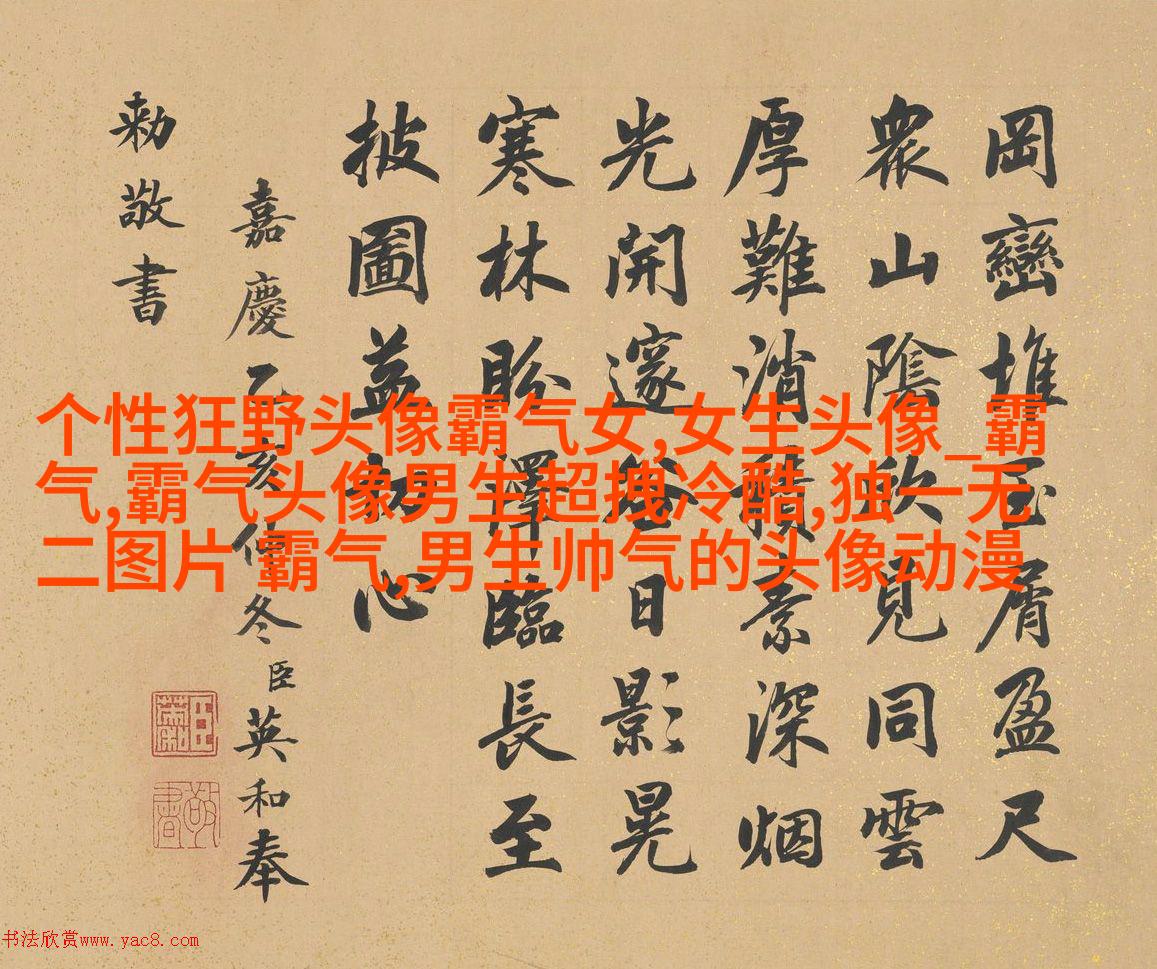 岡巒堆玉屑盈尺
衆山陰欣見同雲
厚難消積素深烟
光開邃谷日影晃
寒林盼澤臨長至
披圖益心
嘉慶乙亥仲冬臣英和奉
勅敬書
个性狂野头像霸气女,女生头像_霸
气,霸气头像男生超拽冷酷,独一无
二图片 霸气,男生帅气的头像动漫
书法欣赏www.yac8.com